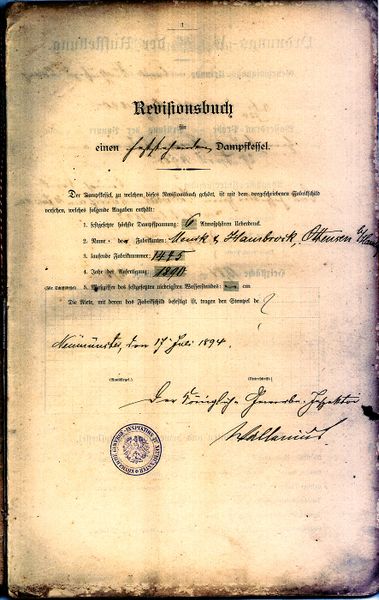 1
Revisionsbuch
für
einen feststehenden Dampfkessel.
Der Dampfkessel, zu welchem dieses Revisionsbuch gehört, ist mit dem vorgeschriebenen Fabrikschild
versehen, welches folgende Angaben enthält:
1. festgesetzte höchste Dampfspannung: 6 Atmosphären Ueberdruck.
2. Name des Fabrikanten: Menck & Hambrock, Ottensen
3. laufende Fabriknummer: 1485
4. Jahr der Anfertigung: 1890
5. Maßziffer des festgesetzten niedrigsten Wasserstandes: cm
Die Niete, mit denen das Fabrikschild befestigt ist, tragen den Stempel
Neumünster, den 17 Juli 1894.
(Amtssiegel.) (Unterschrift.)
Der Königliche Gewerbe-Inspektor